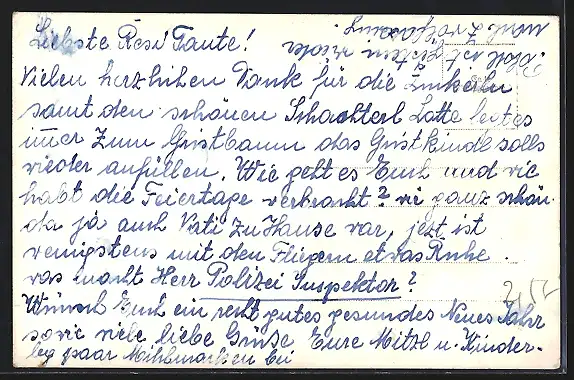 Liebste Resi Tante!
Vielen herzlichen Dank für die Zuckerln
samt den schönen Schachterl Lotte legt es
immer zum Gristbaum das Gristkindl solls
wieder anfüllen. Wie geht es Euch und wie
habt die Feiertage verbracht? wir ganz schön
da ja auch Vati zu Hause war, jetzt ist
wenigstens mit den Fliegern etwas Ruhe.
was macht Herr Polizei Inspektor?
Wünsch Euch ein recht gutes gesundes Neues Jahr
sowie viele liebe Grüße Eure Mitzl u. Kinder.
leg paar Milchmarken bei